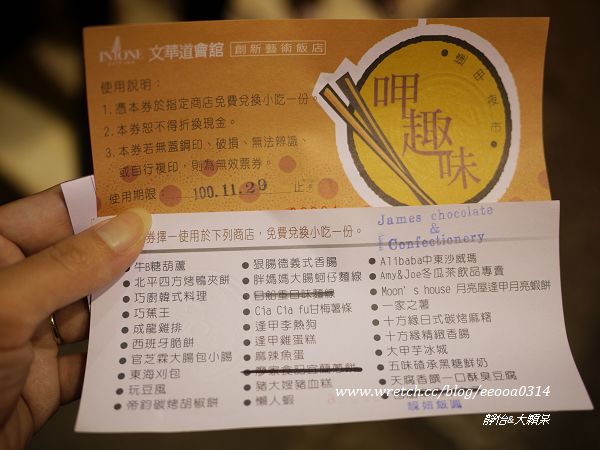 INONE
文華道會館 創新藝術飯店
使用說明：
1. 憑本券於指定商店免費兌換小吃一份。
2. 本券恕不得折換現金。
3. 本券若無蓋鋼印、破損、無法辨識、
或自行複印，則為無效票券。
使用期限 100.11.29 止。
逢甲夜市
呷趣味
券擇一使用於下列商店，免費兌換小吃一份。
James chocolate
&
Confectionery
●牛B糖葫蘆
●北平四方烤鴨夾餅
●巧廚韓式料理
●巧蕉王
●成龍雞排
●西班牙脆餅
●官芝霖大腸包小腸
●東海刈包
●玩豆風
●帝鈞碳烤胡椒餅
●狠腸德義式香腸
●胖媽媽大腸蚵仔麵線
●日船重口味麵線
●Cia Cia fu甘梅薯條
●逢甲李熱狗
●逢甲雞蛋糕
●麻辣魚蛋
●豬大嫂豬血糕
●懶人蝦
●Alibaba中東沙威瑪
●Amy&Joe冬瓜茶飲品專賣
●Moon's house 月亮屋逢甲月亮蝦餅
●一家之薯
●十方緣日式碳烤麻糬
●十方緣精緻香腸
●大甲芋冰城
●五味碴承黑糖鮮奶
●天腐香饌一口酥臭豆腐
www.wretch.cc/blog/eeooa0314
靜怡&大顆呆